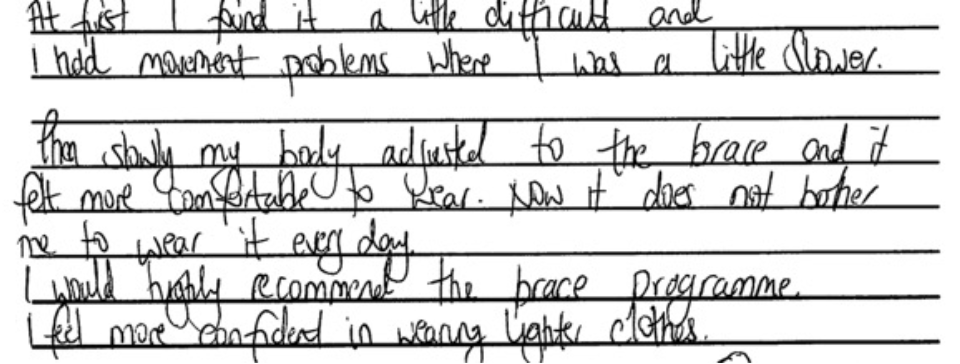 At first I found it a little difficult and
I had movement problems where I was a little slower.
Then slowly my body adjusted to the brace and it
felt more comfortable to wear. Now it does not bother
me to wear it every day.
I would highly recommend the brace programme.
I feel more confident in wearing lighter clothes.